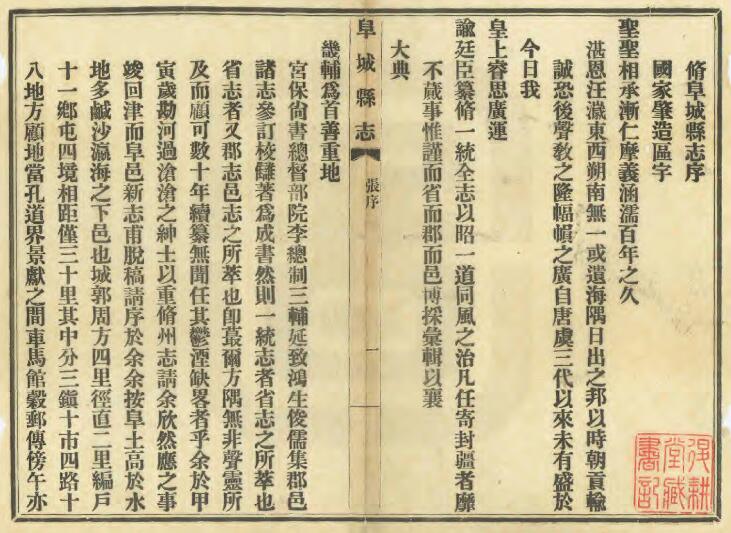 脩阜城縣志序
國家肇造區宇
聖聖相承漸仁摩義涵濡百年之久
湛恩汪濊東西朔南無一或遺海隅日出之邦以時朝貢輸
誠恐後聲敎之隆幅㡓之廣自唐虞三代以來未有盛於
今日我
皇上睿思廣運
諭廷臣纂脩一統全志以昭一道同風之治凡任寄封疆者靡
不蕆事惟謹而省而郡而邑博採彙輯以襄
大典
阜城縣志
張序
一
畿輔爲首善重地
宮保尙書總督部院李總制三輔延致鴻生俊儒集郡邑
諸志參訂校讎著爲成書然則一統志者省志之所萃也
省志者又郡志邑志之所萃也卽蕞爾方隅無非聲靈所
及而顧可數十年續纂無聞任其鬱湮缺畧者乎余於甲
寅歲勘河過滄滄之紳士以重脩州志請余欣然應之事
竣回津而阜邑新志甫脫稿請序於余余按阜土高於水
地多鹹沙瀛海之下邑也城郭周方四里徑直二里編戶
十一鄉屯四境相距僅三十里其中分三鎭十市四路十
八地方顧地當孔道界景獻之間車馬館穀郵傳傍午亦
得耕
堂藏
書記